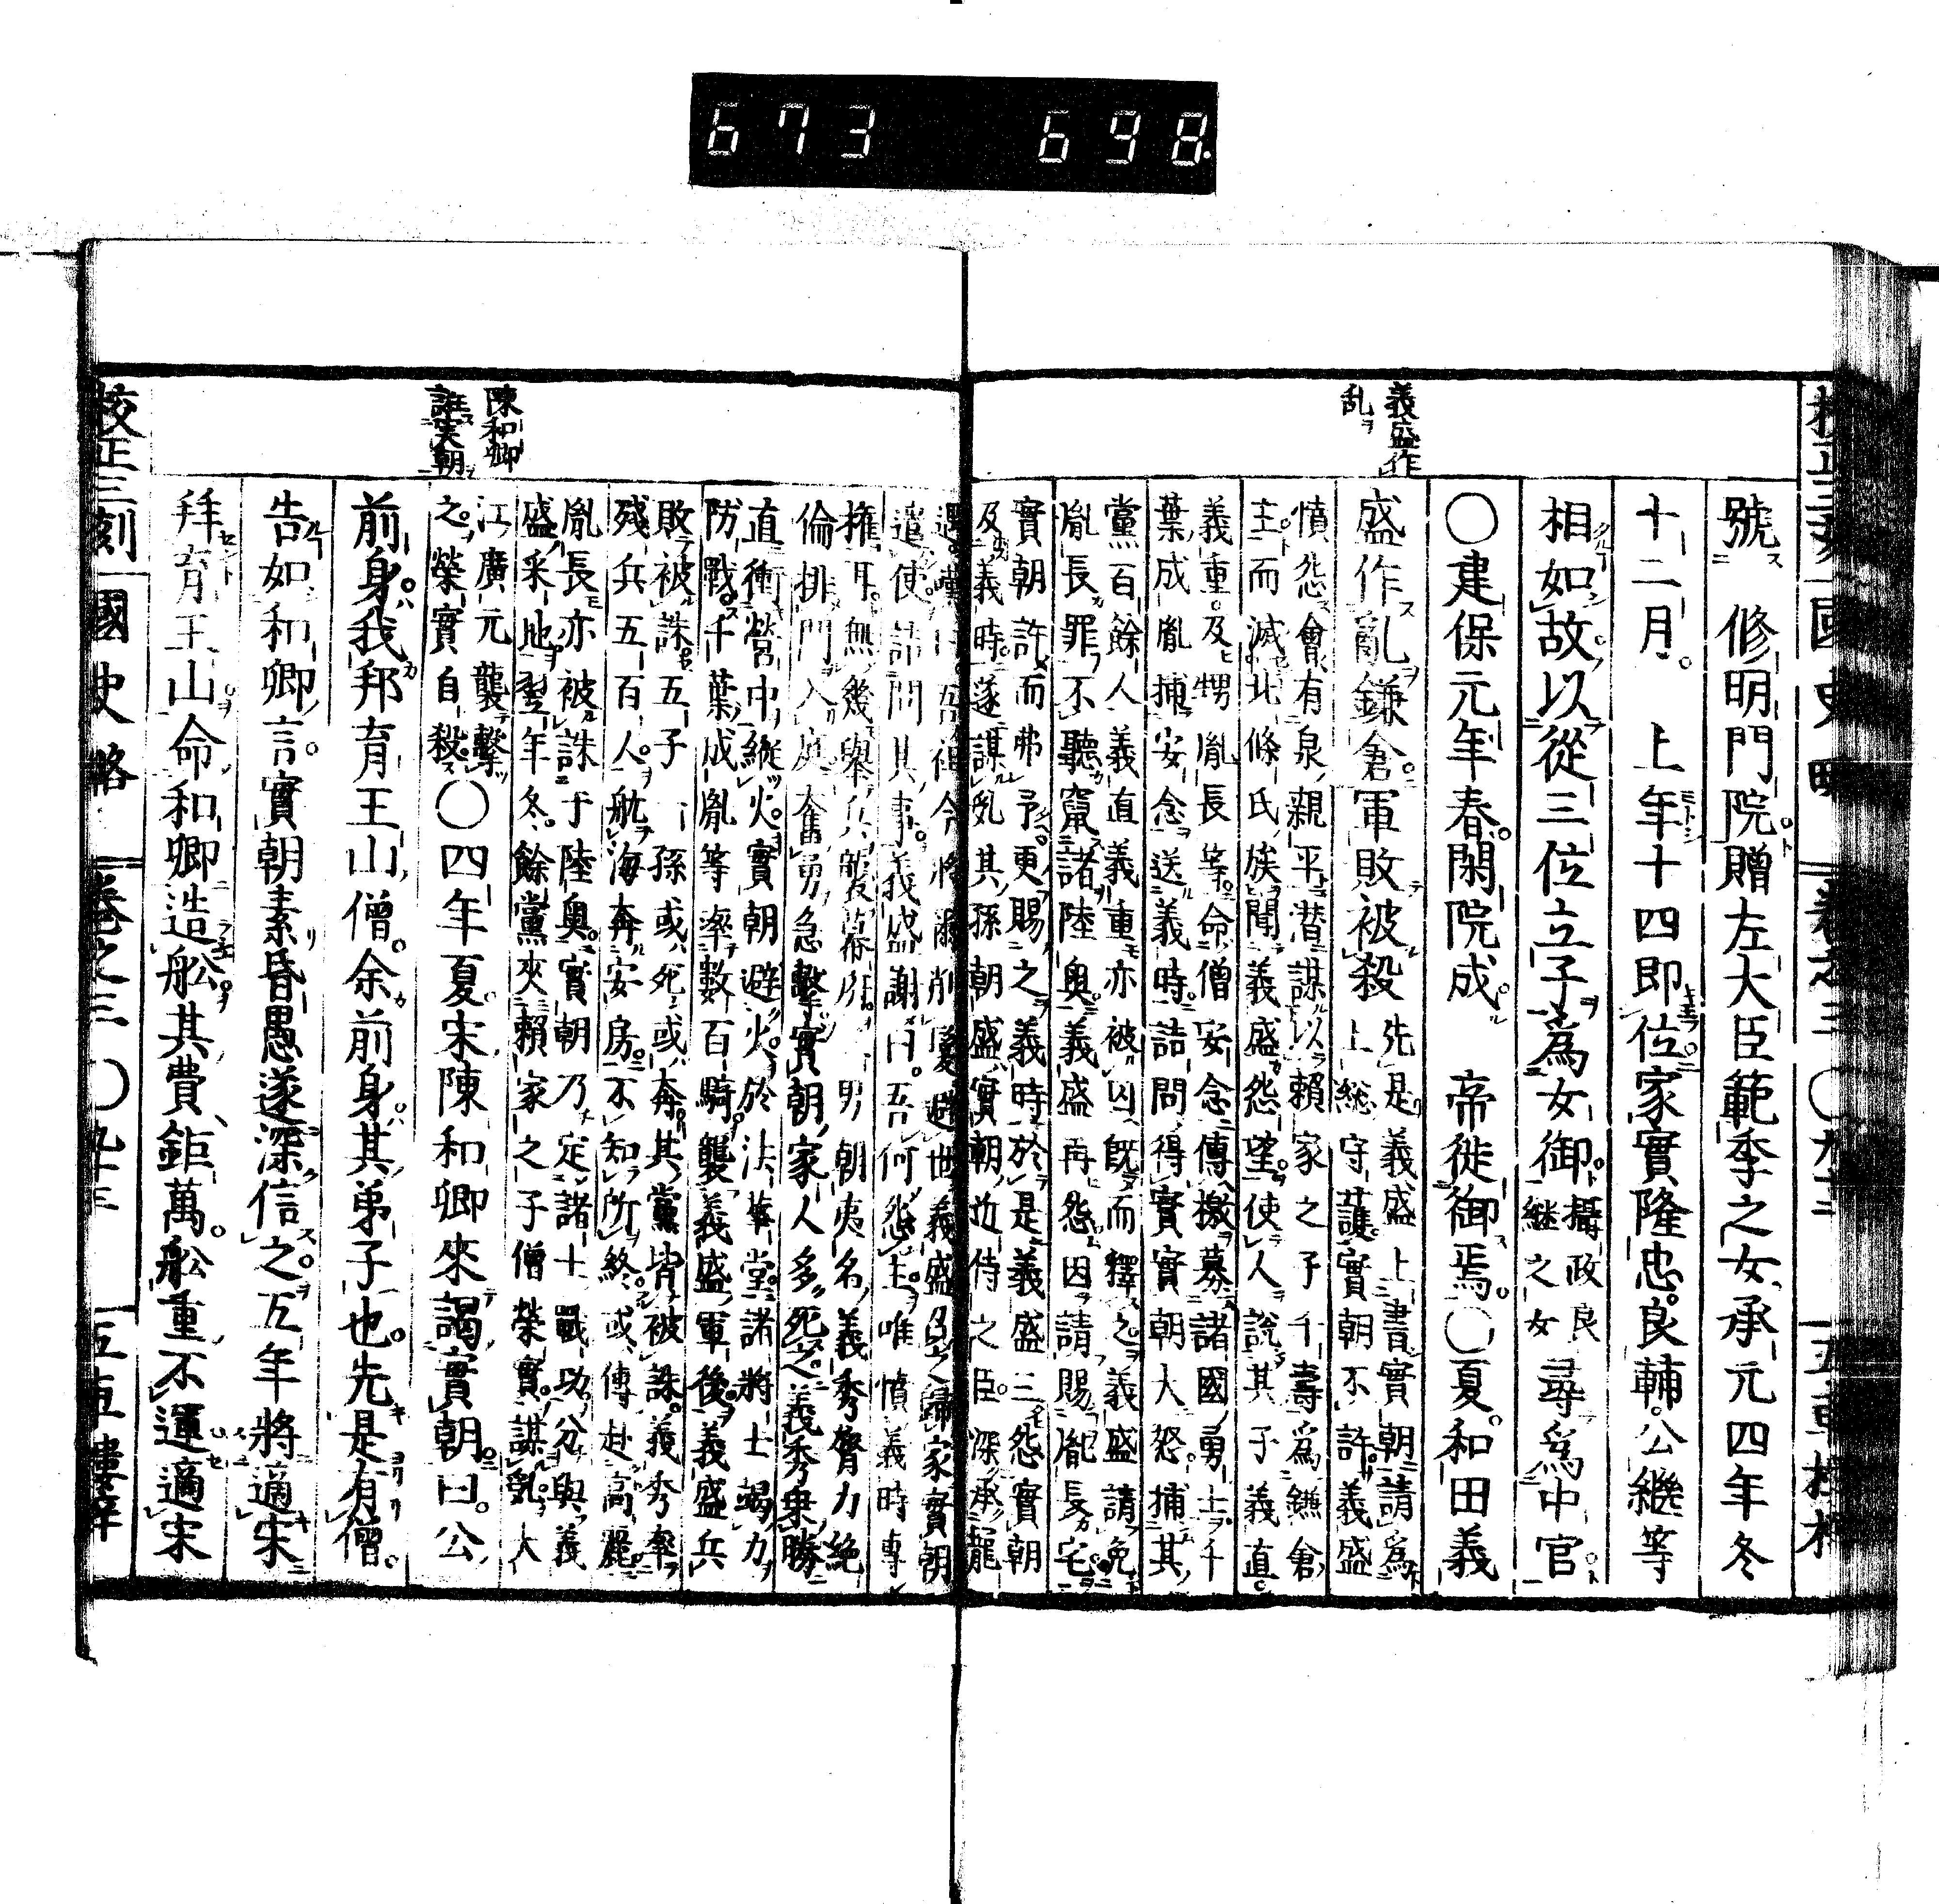 673 698
義盛作
乱ヲ
號ス 修明門院ト贈左大臣範季之女承元四年冬
十二月 上年十四即位家實隆忠良輔公繼等
相如故以從三位立子爲女御攝政良
繼之女
尋爲中官
〇建保元年春閑院成 帝徙御焉〇夏和田義
盛作亂鎌倉軍敗被殺
先是義盛上書實朝請爲
上總守護實朝不許義盛
憤怨會有泉親平潜謀以賴家之子千壽爲鎌倉
主而滅北條氏族聞義盛怨望使人說其子義直
義重及甥胤長等命僧安念傳檄募諸國勇士千
葉成胤捕安念送義時詰問得實實朝大怒捕其
黨百餘人義直義重亦被囚旣而釋之義盛請免
胤長罪不聽竄諸陸奥義盛再怨因請賜胤長宅
實朝許而弗予更賜之義時於是義盛三怨實朝
及義時遂謀乱其孫朝盛實朝近侍之臣深承寵
遁世義盛召之歸家實朝
遣使詰問其事義盛謝曰吾何怨主唯憤義時專
權耳無幾舉兵襲幕府一男朝夷名義秀膂力絶
倫排門入庭奮勇急擊實朝家人多死之義秀乗勝
直衝營中縱火實朝避火於法華堂諸將士竭力
防戰千葉成胤等率數百騎襲義盛軍後義盛兵
敗被誅五子一孫或死或奔其黨皆被誅義秀率
殘兵五百人航海奔安房不知所終或傳赴高麗
胤長亦被誅于陸奥實朝乃定諸士戰功分與義
盛采地翌年冬餘黨夾賴家之子僧榮實謀亂大
江廣元襲擊
之榮實自殺
〇四年夏宋陳和卿來謁實朝曰公
陳和卿
誑実朝
前身我邦育王山僧余前身其弟子也先是有僧
告如和卿言實朝素昏愚遂深信之五年將適宋
拜育王山命和卿造舩其費鉅萬舩重不運適宋
校正三刻 國史略 卷之三 〇九十三 五車樓梓